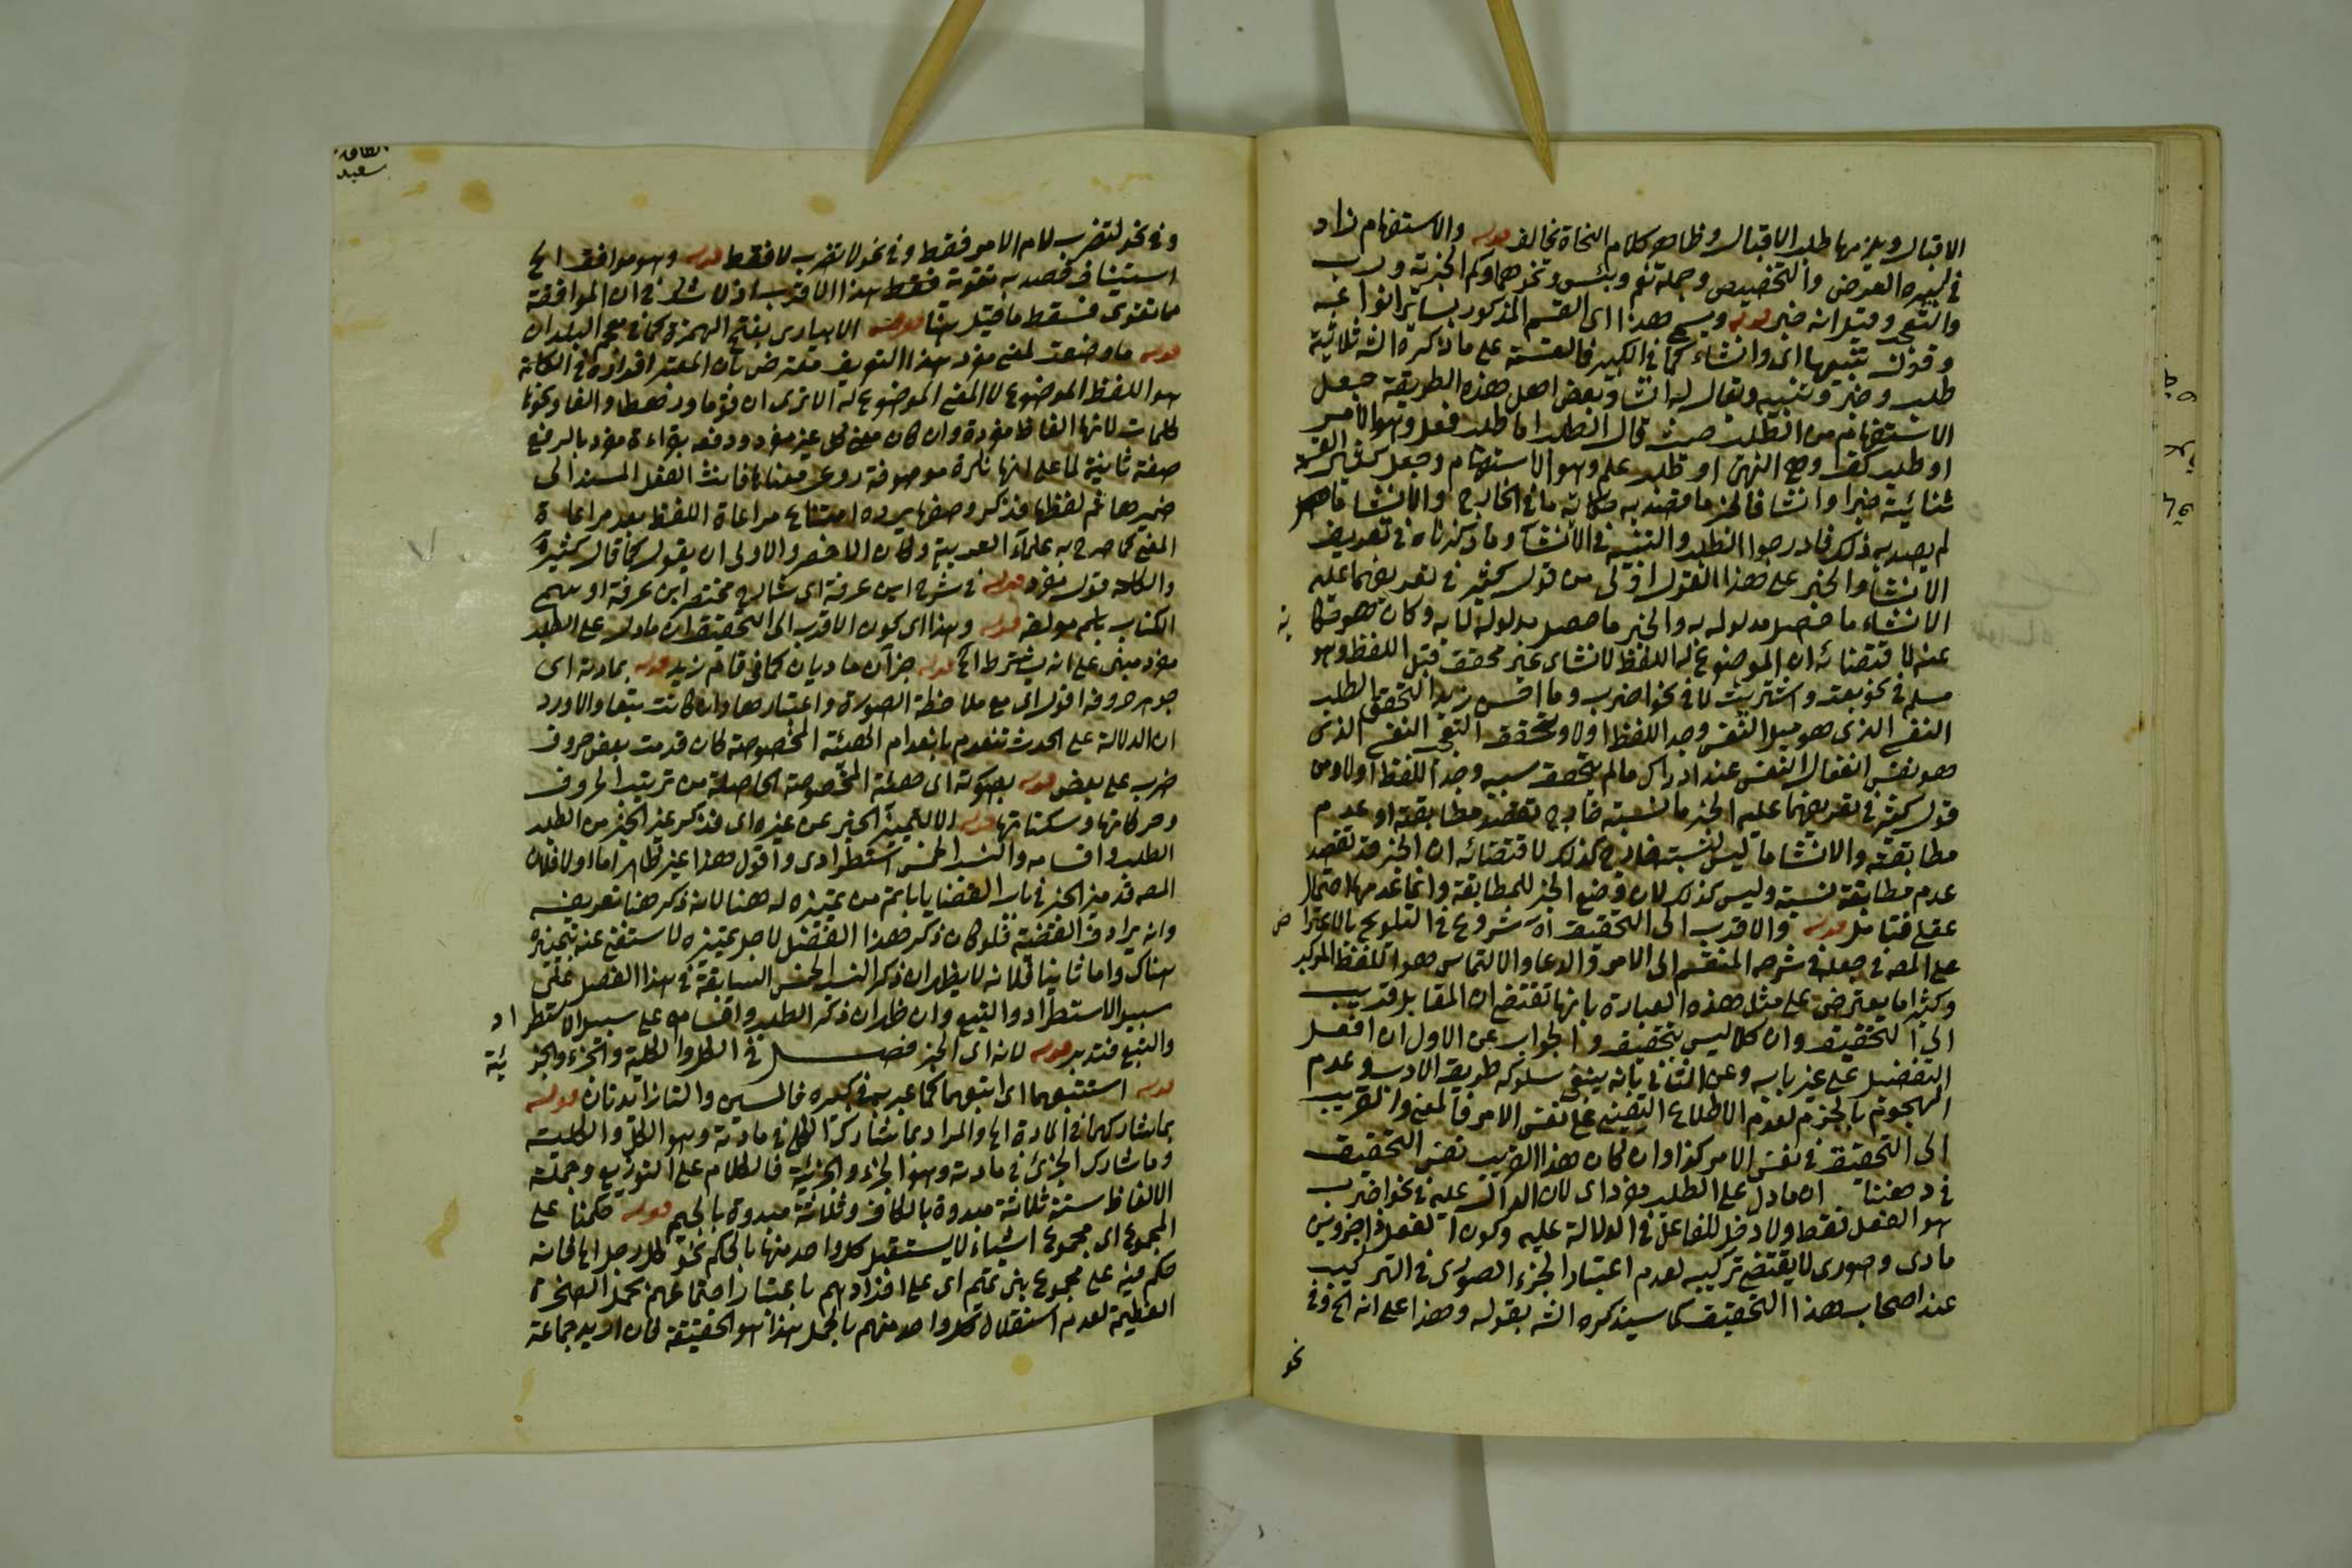 الاقبال ويلزمها طلب الاقبال وظاهر كلام النحاة تخالفه قوله والاستفهام زاد
في كبيره العرض والتخصيص وجملة نعم وبئس ونحوهما وكم الخبرية ورب
والتعجب وقيل انه خبر قوله ويسمى هذا اى القسم المذكور بسائر انواعه
وقوله تنبيها اى وانشاء كما في الكبير فالقسمة على ما ذكره الش ثلاثية
طلب وخبر وتنبيه ويقال له انشا وبعض اهل هذه الطريقة جعل
الاستفهام من الطلب حيث قال الطلب اما طلب فعل وهو الامر
او طلب كف وهو النهى او طلب علم وهو الاستفهام وجعل كثير القسمة
ثنائية خبرا وانشا فالخبر ما قصد به حكاية ما في الخارج والانشا ما
لم يقصد به ذلك فادرجوا الطلب والتنبيه في الانشآ وما ذكرناه في تعريف
الانشا والخبر على هذا القول اولى من قول كثير في تعريفهما عليه
الانشاء ما حصل مدلوله به والخبر ما حصل مدلوله لا به وكان هو حكاية
عنه لاقتضائه ان الموضوع له اللفظ الانشاى غير محقق قبل اللفظ وهو
مسلم في نحو بعت واشتريت لا في نحو اضرب وما احسن زيدا لتحقق الطلب
النفسى الذى هو ميل النفس وجد اللفظ اولا وتحقق التعجب النفسى الذى
هو نفس انفعال النفس عند ادراك ما لم يتحقق سببه وجد اللفظ اولا ومن
قول كثير في تعريفهما عليه الخبر ما لنسبته خارج تقصد مطابقته او عدم
مطابقته والانشا ما ليس لنسبته خارج كذلك لاقتضائه ان الخبر قد تقصد
عدم مطابقة نسبته وليس كذلك لان وضع الخبر للمطابقة وانما عدمها احتمال
عقلى فتامل قوله والاقرب الى التحقيق اه شروع في التلويح بالاعتراض
على المص في جعله في شرحه المنقسم الى الامر والدعا والالتماس هو اللفظ المركب
وكثيرا ما يعترض على مثل هذه العبارة بانها تقتضى ان المقابل قريب
الى التحقيق وان كلا ليس بتحقيق والجواب عن الاول ان افعل
التفضيل على غير بابه وعن الثانى بانه ينبغى سلوكه طريق الادب وعدم
الهجوم بالجزم لعدم الاطلاع اليقينى على نفس الامر فالمعنى والقريب
الى التحقيق في نفس الامر كذا وان كان هذا القريب نفس التحقيق
في ذهننا ان ما دل على الطلب مفرد اى لان الدال عليه في نحو اضرب
هو الفعل فقط ولا دخل للفاعل في الدلالة عليه وكون الفعل ذا جزوين
مادى وصورى لا يقتضى تركيبه لعدم اعتبار الجزء الصورى في التركيب
عند اصحاب هذا التحقيق كما سيذكره الش بقوله وهذا على انه الخ وفى
نحو
وفى نحو لتضرب لام الامر فقط وفى نحو لا تضرب لا فقط قوله وهو موافق الخ
استيناف قصد به تقوية فقط هذا الاقرب اذ لا شك في ان الموافقة
مما تقوى فسقط ما قيل هنا قوله الابيارى بفتح الهمزة كما في معجم البلدان
قوله ما وضعت لمعنى مفرد هذا التعريف معترض بان المعتبر افراده في الكلمة
هو اللفظ الموضوع لا المعنى الموضوع له الا ترى ان قوما ورهطا والفا ونحوها
كلمات لانها الفاظ مفردة وان كان معنى كل غير مفرد ودفعه بقراءة مفرد بالرفع
صفة ثانية لما على انها نكرة موصوفة روعى معناها فانث الفعل المسند الى
ضميرها ثم لفظها فذكر وصفها يرده امتناع مراعاة اللفظ بعد مراعاة
المعنى كما صرح به علمآء العربية وكان الاخصر والاولى ان يقول كما قال كثير
والكلمة قول مفرد قوله في شرح ابن عرفة اى شارح مختصر ابن عرفة او سمى
الكتاب باسم مولفه قوله وهذا اى كون الاقرب الى التحقيق ان ما دل على الطلب
مفرد مبنى على انه يشترط الخ قوله جزآن ماديان كما في قام زيد قوله بمادته اى
جوهر حروفه اقول اى مع ملاحظة الصورة واعتبارها وان كانت تبعا والا ورد
ان الدلالة على الحدث تنعدم بانعدام الهيئة المخصوصة كان قدمت بعض حروف
ضرب على بعض قوله بصورته اى هيئة المخصوصة الحاصلة من ترتيب الحروف
وحركاتها وسكناتها قوله الا لتمييز الخبر عن غيره اى فذكر غير الخبر من الطلب
الطلب واقسامه والنسب الخمس استطرادى واقول هذا غير ظاهر اما اولا فلان
المص قد ميز الخبر في باب القضايا باتم من تمييزه له هنا لانه ذكر هنا تعريفه
وانه يرادف القضية فلو كان ذكر هذا الفصل لاجل تمييزه لاستغنى عنه بتمييزه
هناك واما ثانيا فلانه لا يظهر ان ذكر النسب الخمس السابقة في هذا الفصل على
سبيل الاستطراد والتبع وان ظهر ان ذكر الطلب واقسامه على سبيل الاستطراد
والتبع فتدبر قوله لانه اى الخبر فصل في الكل والكلية والجزء والجزئية
قوله استتبعهما اى اتبعهما كما عبر به في كبيره فالسين والتا زائدتان قوله
بما شاركهما في المادة اى والمراد بما شارك الكل في مادته وهو الكلى والكلية
وما شارك الجزئى في مادته وهو الجزء والجزئية فالكلام على التوزيع وجملة
الالفاظ ستة ثلاثة مبدوة بالكاف وثلاثة مبدوة بالجيم قوله حكمنا على
المجموع اى مجموع اشياء لا يستقبل كل واحد منها بالحكم نحو كل رجل اى لانه
حكم فيه على مجموع بنى تميم اى على افرادهم باعتبار اجتماعهم بحمل الصخرة
العظيمة لعدم استقلال كل واحد منهم بالحمل هذا هو الحقيقة فان اريد جماعة
سعيد